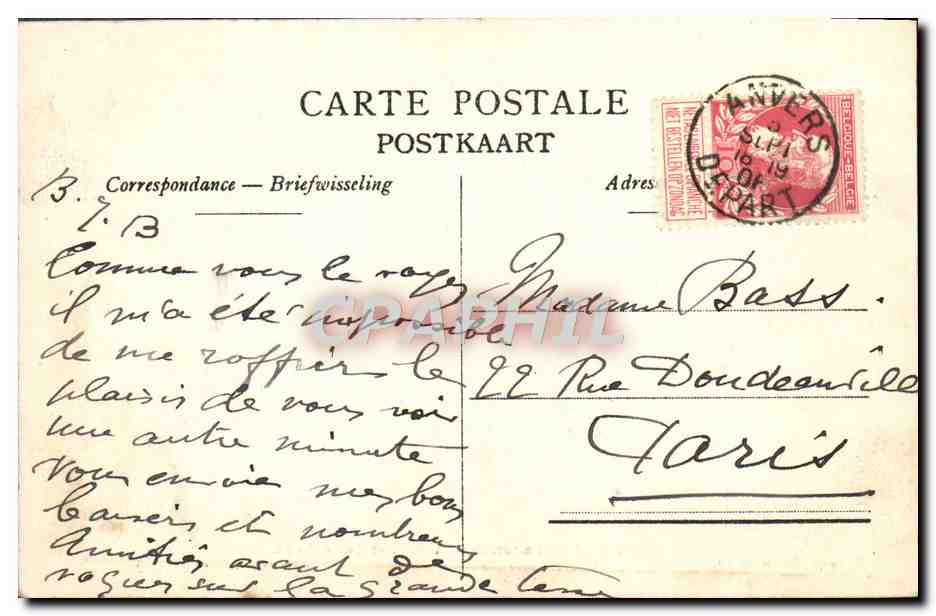 CARTE POSTALE
POSTKAART
Correspondance — Briefwisseling
Adres
ANVERS
SEPT
DEPART
BELGIQUE-BELGIË
NIET BESTELLEN OP ZONDAG
B.
B
Comme vous le voyez
il m'a été impossible
de me le
plaisir de vous voir
une autre minute
Vous envoie mes bons
baisers et nombreux
Amitiés avant de
voguer sur la grande
Madame Bass.
22 Rue Doudeauville
Paris
CPAPHIL